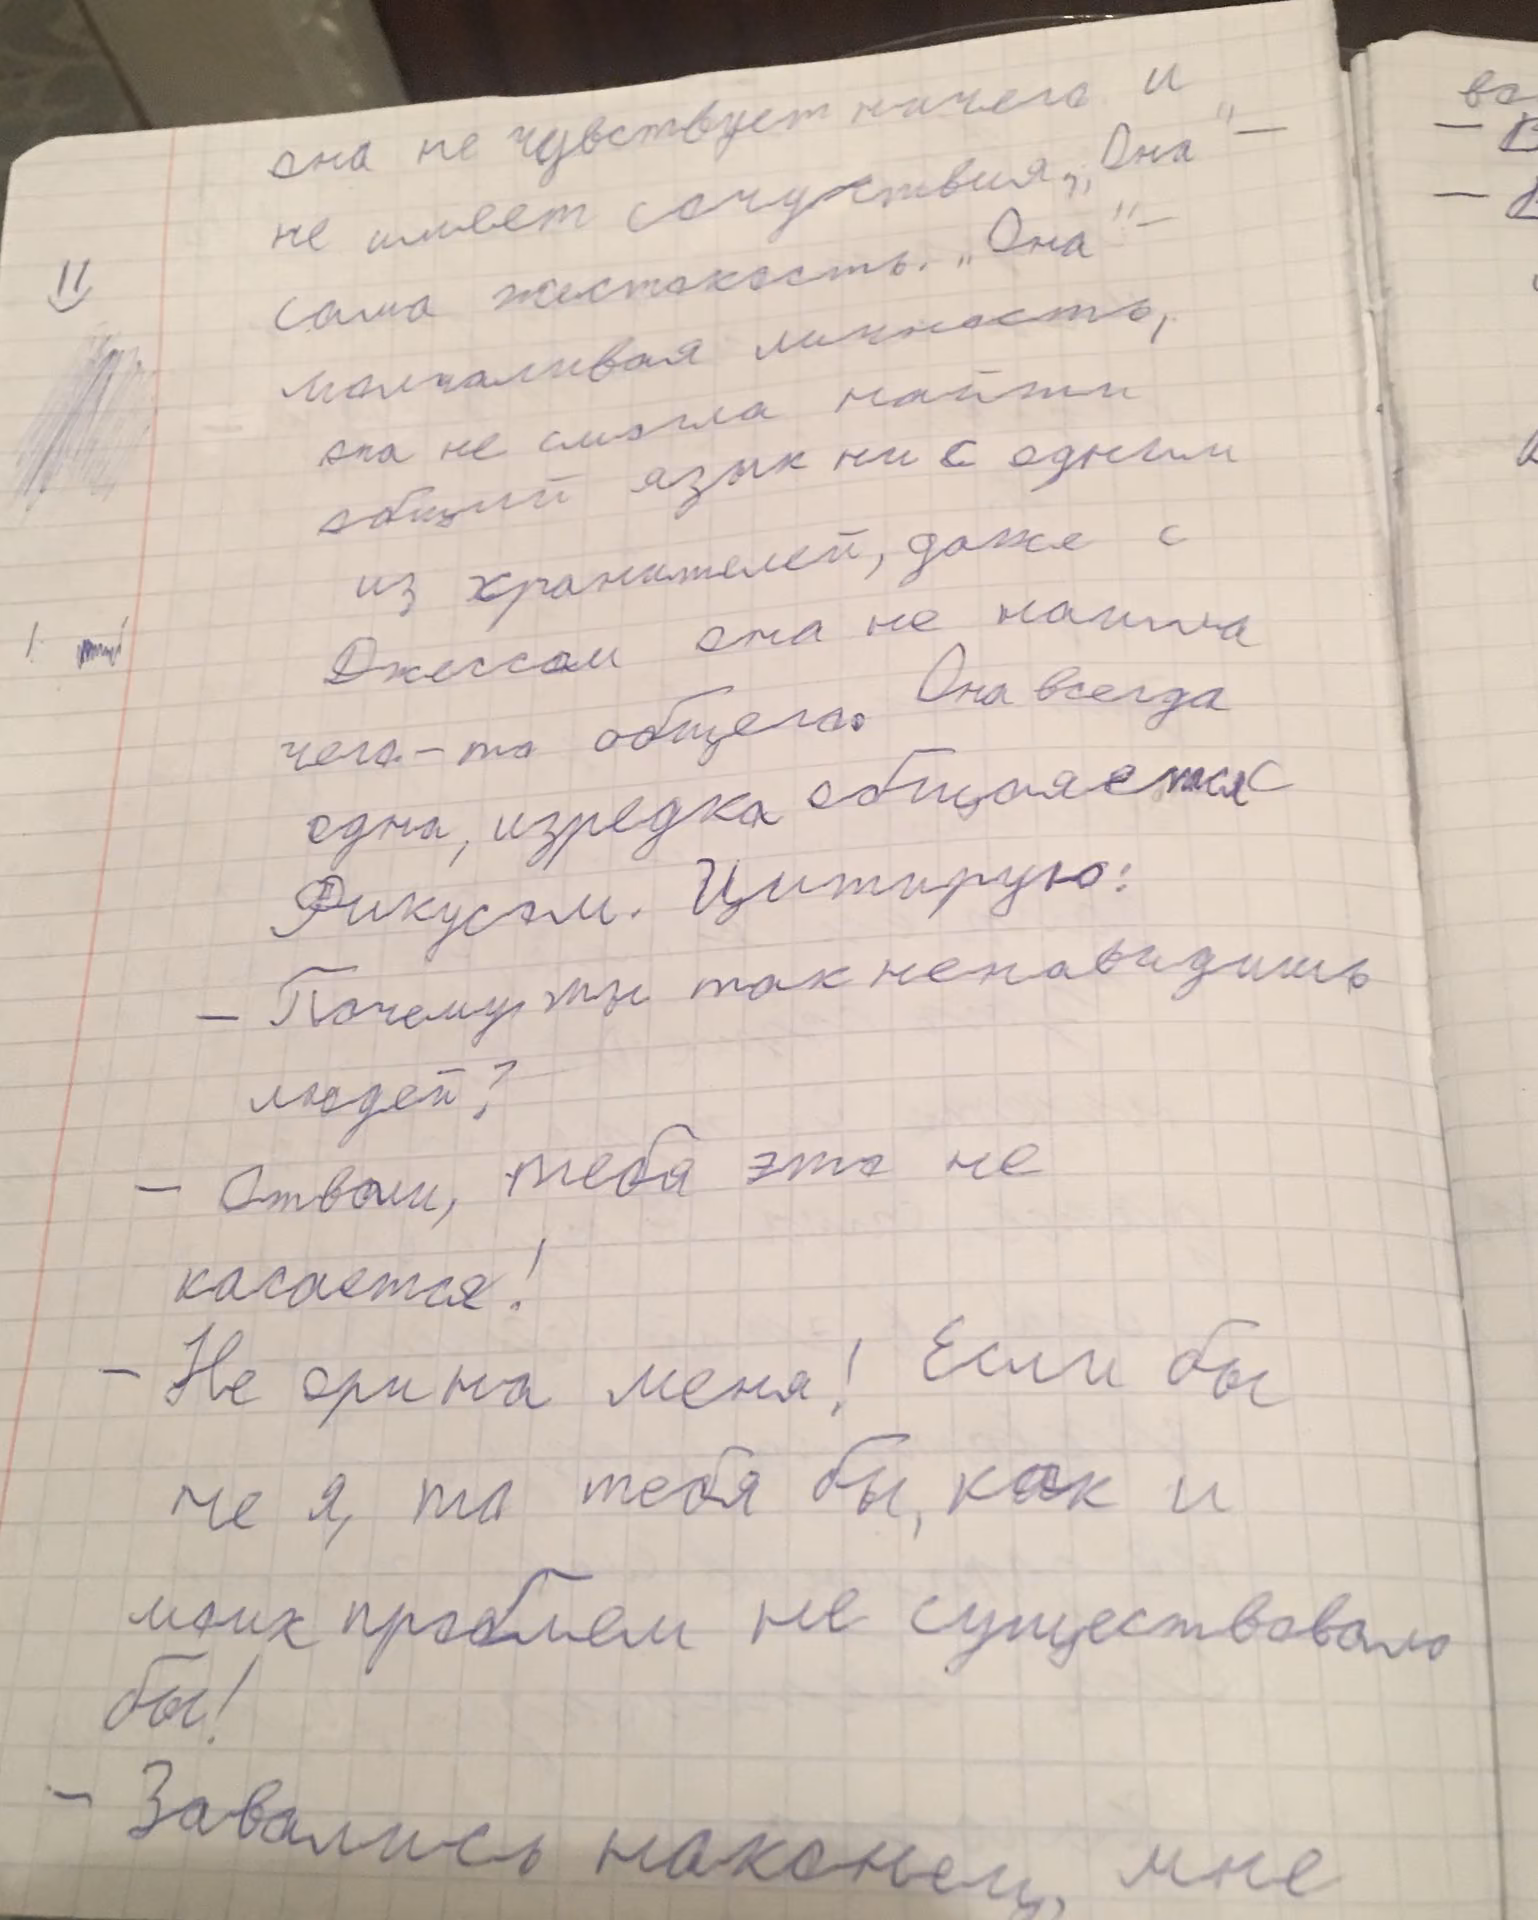 она не чувствует ничего и
не имеет сочуствия. „Она" –
сама жестокость. „Она" –
молчаливая личность,
она не смогла найти
общий язык ни с одним
из хранителей, даже с
Джессом она не нашла
чего-то общего. Она всегда
одна, изредка общается с
Рикусом. Цитирую:
– Почему ты так ненавидишь
людей?
– Отвали, тебя это не
касается!
– Не ори на меня! Если бы
не я, то тебя бы, как и
моих проблем не существовало
бы!
– Завались наконец, мне